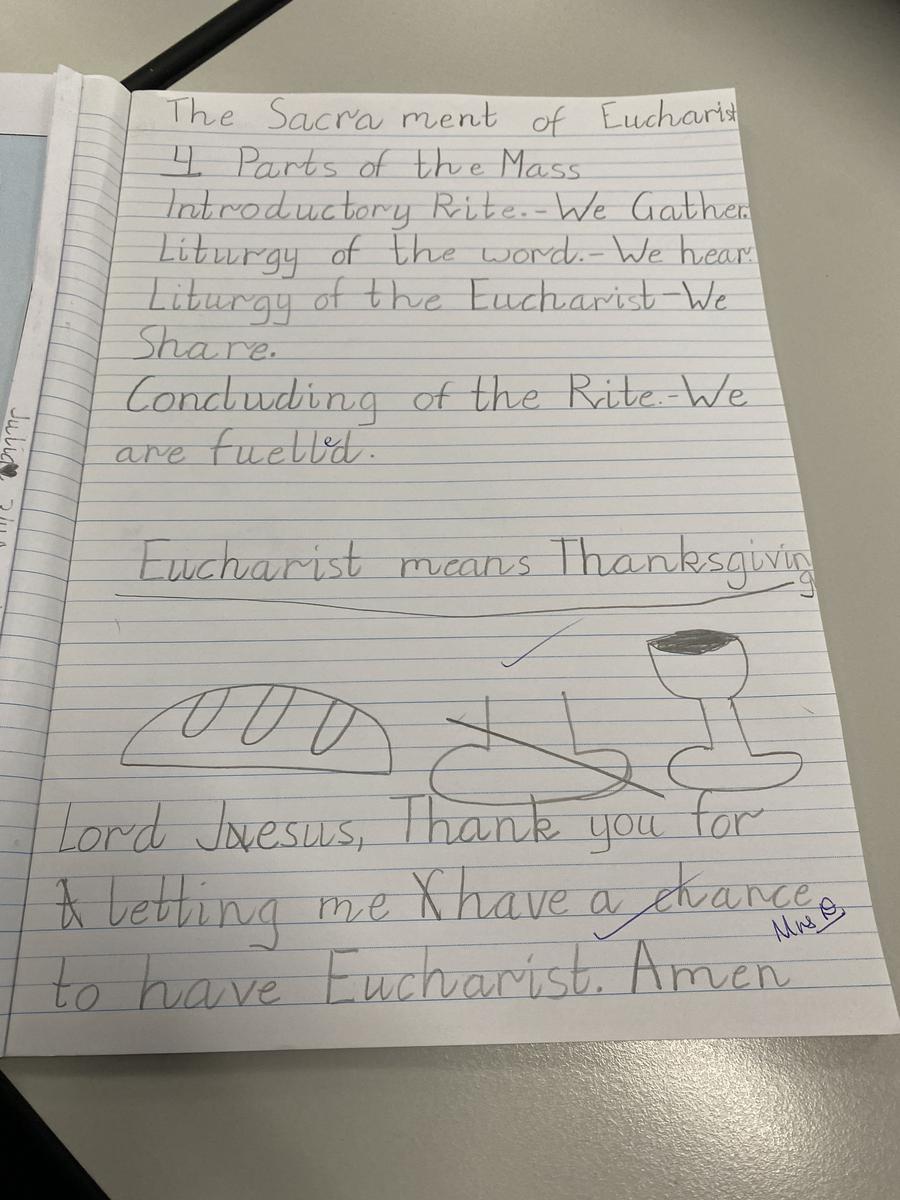 The Sacrament of Eucharist
4 Parts of the Mass
Introductory Rite.-We Gather.
Liturgy of the word.-We hear.
Liturgy of the Eucharist-We
Share.
Concluding of the Rite.-We
are fuelled.
Eucharist means Thanksgiving
Lord Jesus, Thank you for
letting me have a chance
Mrs
to have Eucharist. Amen
Julia